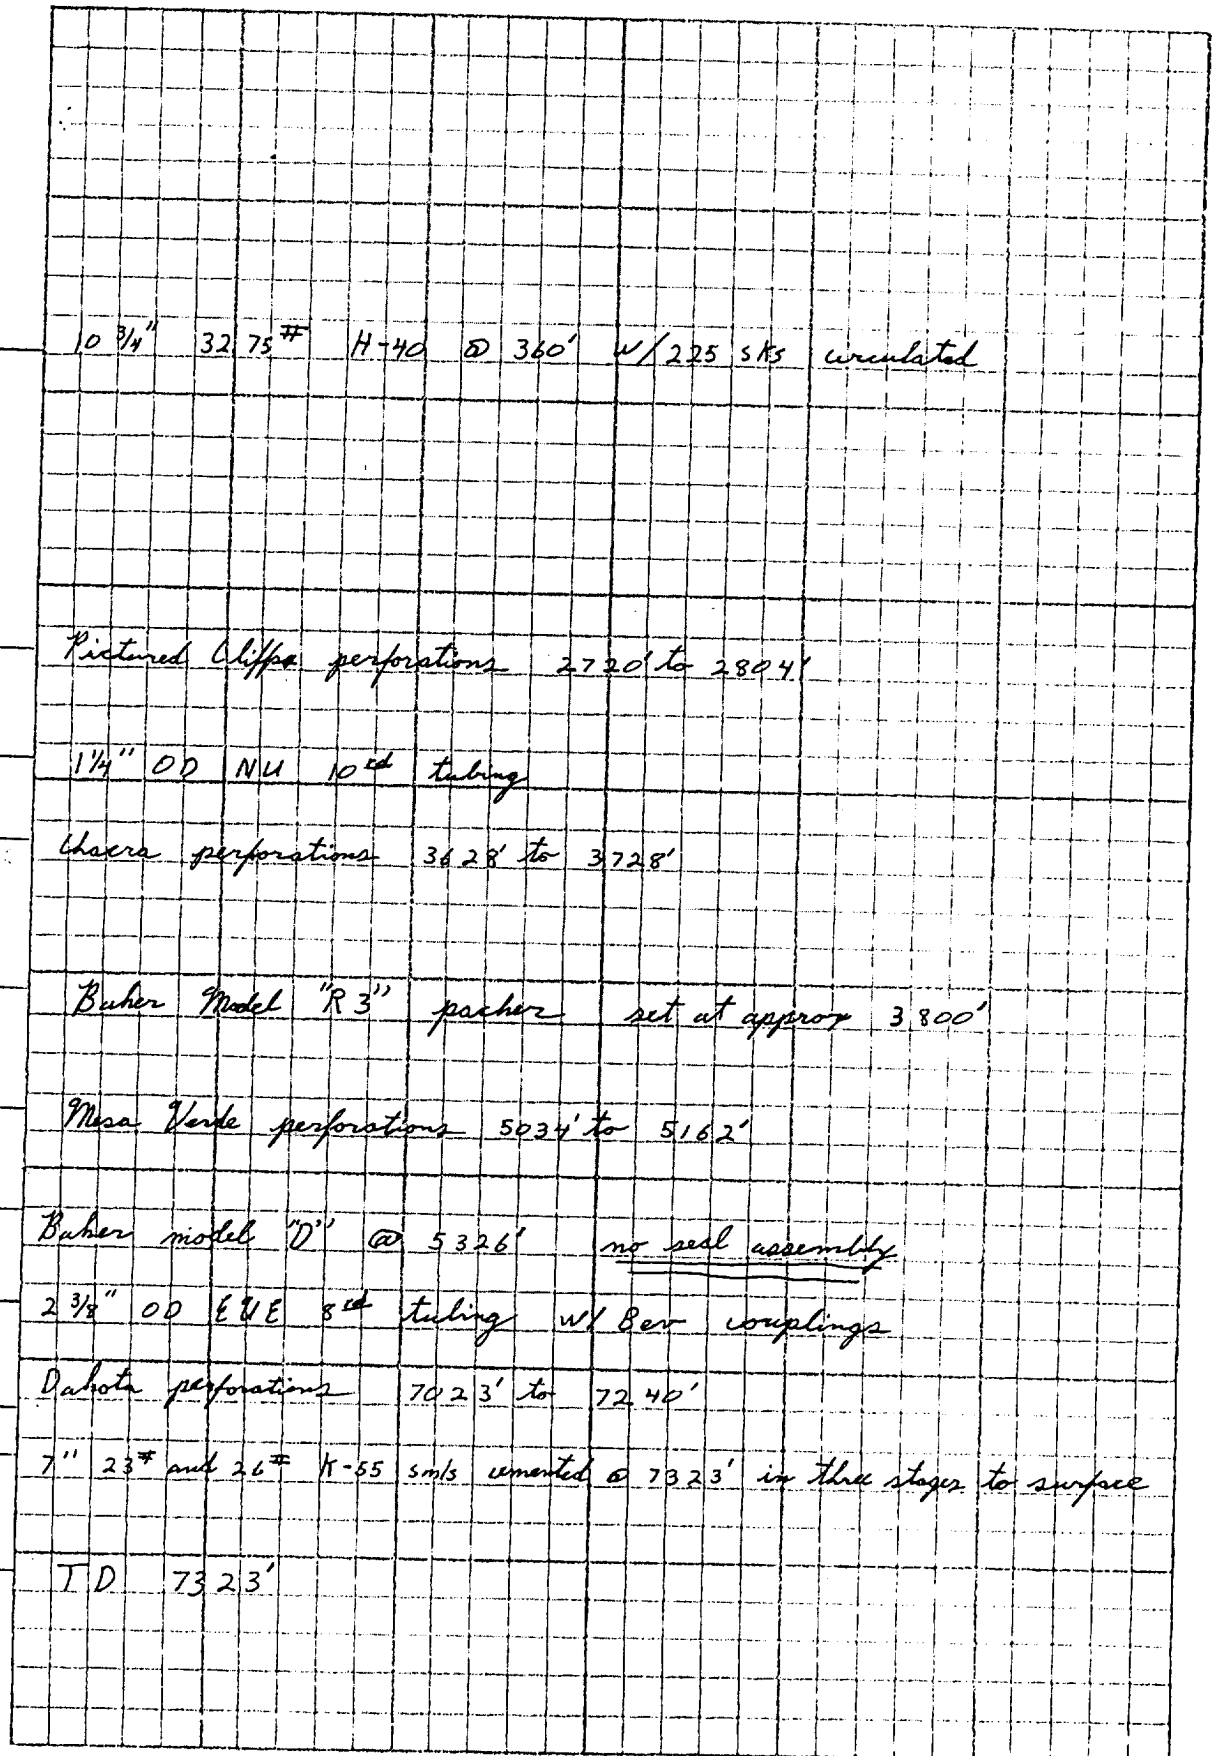 10 3/4" 32.75# H-40 @ 360' w/225 sks circulated
Pictured Cliffs perforations 2720' to 2804'
1 1/4" OD NU 10 rd tubing
Chacra perforations 3628' to 3728'
Baker Model "R3" packer set at approx 3800'
Mesa Verde perforations 5034' to 5162'
Baker model "D" @ 5326' no seal assembly
2 3/8" OD EUE 8 rd tubing w/ Bev couplings
Dakota perforations 7023' to 7240'
7" 23# and 26# K-55 smls cemented @ 7323' in three stages to surface
TD 7323'